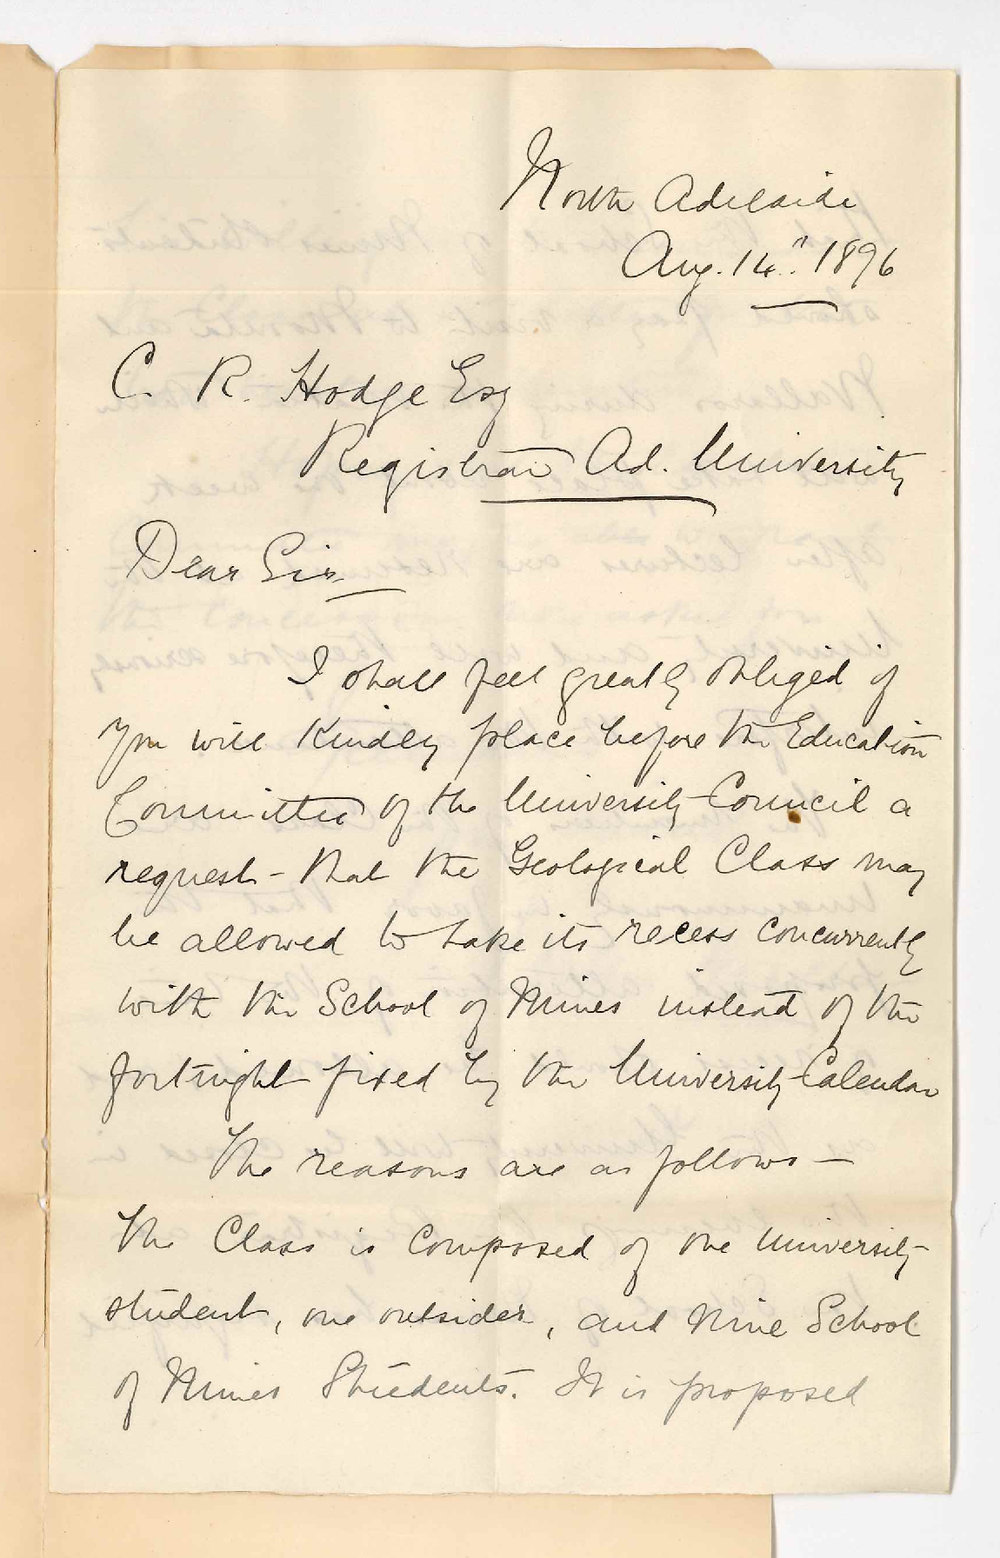 North Adelaide
Aug. 14". 1896
C. R. Hodge Esq
Registrar Ad. University
Dear Sir
I shall feel greatly obliged if
you will kindly place before the Education
Committee of the University Council a
request that the Geological Class may
be allowed to take its recess concurrently
with the School of Mines instead of the
fortnight fixed by the University Calendar
The reasons are as follows —
The Class is composed of one University
student, one outsider, and nine School
of Mines Students. It is proposed